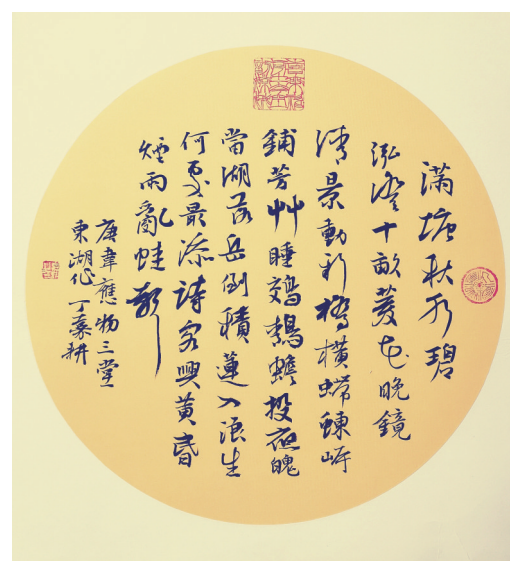 滿塘秋水碧
泓澄十畝菱花晚鏡
清景動新橋橫螮蝀岸
鋪芳艸睡鵁鶄蟾投夜魄
當湖落岳倒積蓮入浪生
何處最添詩客興黃昏
煙雨亂蛙聲
唐韋應物三堂
東湖作 丁嘉耕